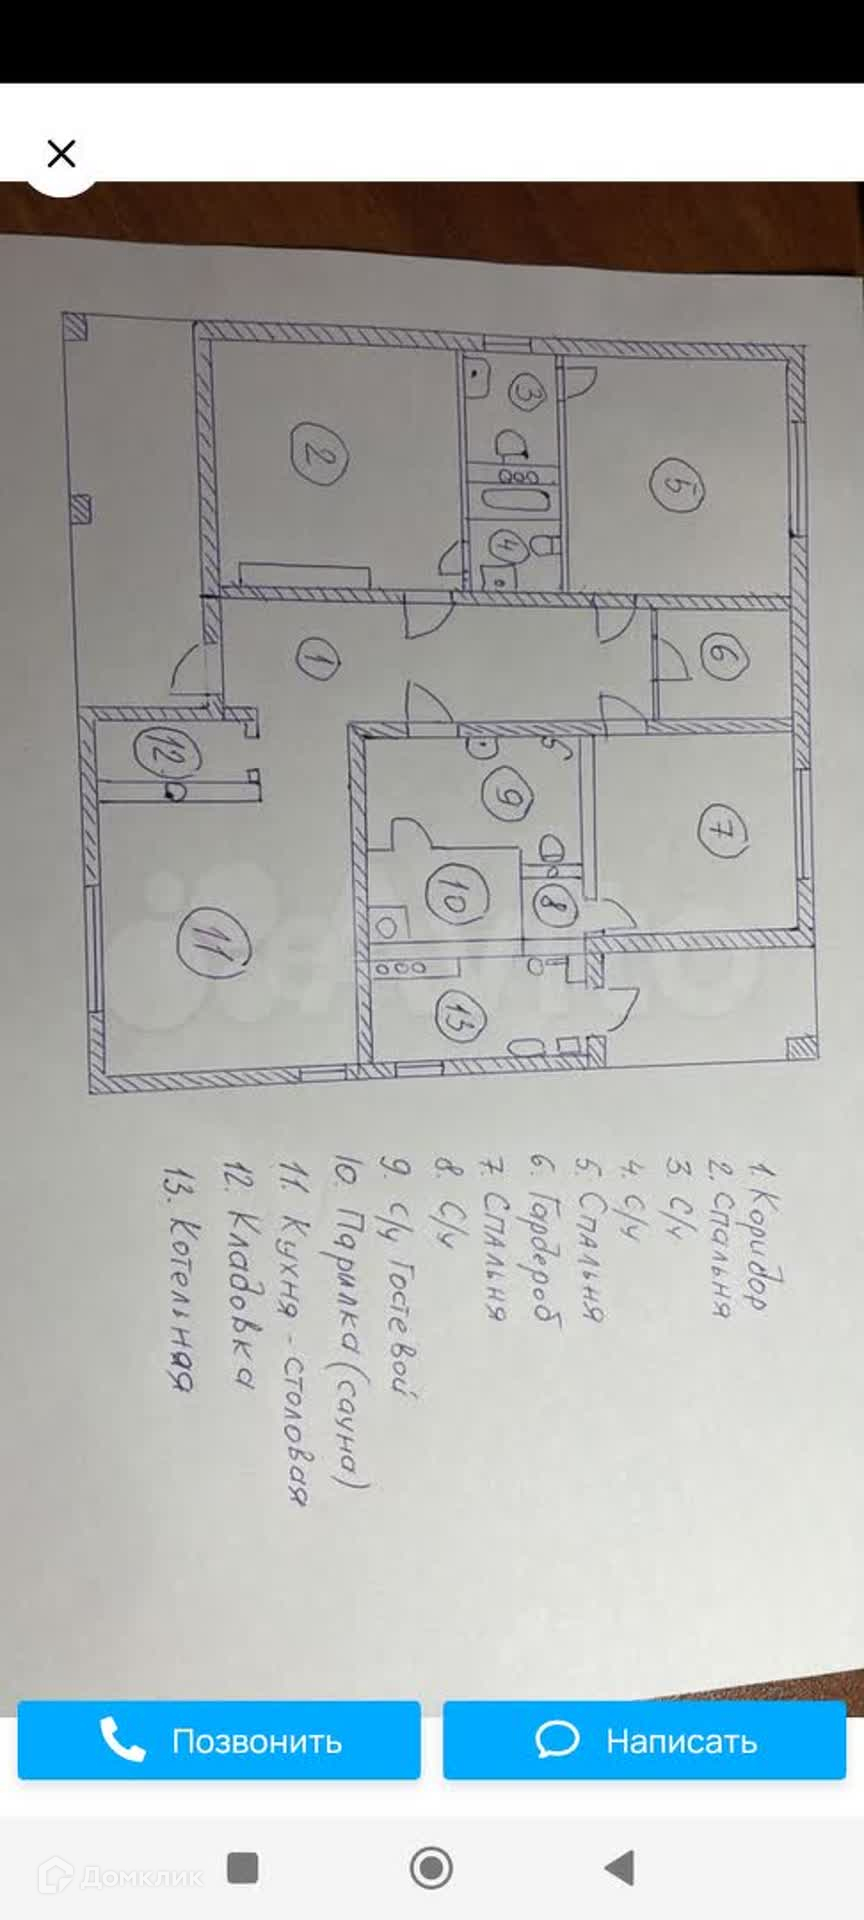 3
2
5
4
1
6
12
9
7
10
8
11
13
Avito
1. Коридор
2. Спальня
3. С/у
4. С/у
5. Спальня
6. Гардероб
7. Спальня
8. С/у
9. С/у Гостевой
10. Парилка (сауна)
11. Кухня - столовая
12. Кладовка
13. Котельная
Позвонить
Написать
Домклик